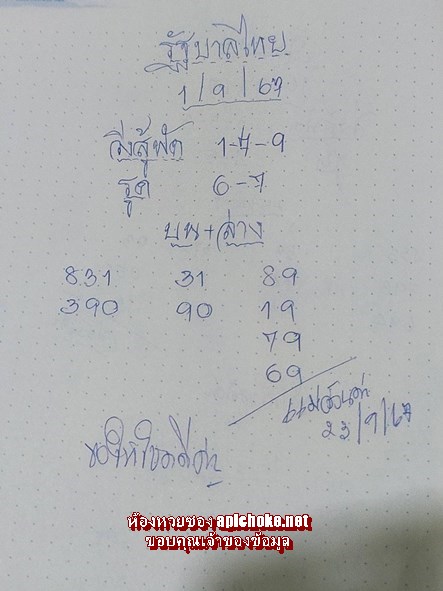 รัฐบาลไทย
1/9/67
วิ่งสู้ฟัด 1-7-9
รูด 6-7
บน+ล่าง
831 31 89
390 90 19
79
69
23/9/67
ขอให้โชคดีค่ะ
ห้องหวยซอง apichoke.net
ขอบคุณเจ้าของข้อมูล